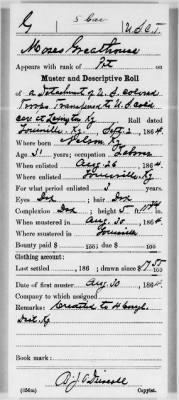 G 5 Cav U.S.C.T.
Moses Greathouse
Appears with rank of Pvt on
Muster and Descriptive Roll
of a Detachment of U. S. colored
Troops Transferred to U.S. Cold
Cav at Lexington Ky Roll dated
Louisville Ky Sept 2, 1864
Where born Nelson Ky
Age 31 years; occupation Laborer
When enlisted Aug 26, 1864
Where enlisted Louisville Ky
For what period enlisted 3 years.
Eyes Dark; hair Dark
Complexion Dark; height 5 ft. in.
When mustered in Aug. 30, 1864
Where mustered in Louisville
Bounty paid $ 100; due $ 100
Clothing account:
Last settled , 186 ; drawn since $ 17 55/100
Date of first muster Aug 30, 1864
Company to which assigned
Remarks: Credited to 4 Congl.
Dist. Ky
Book mark:
(356m) Copyist.